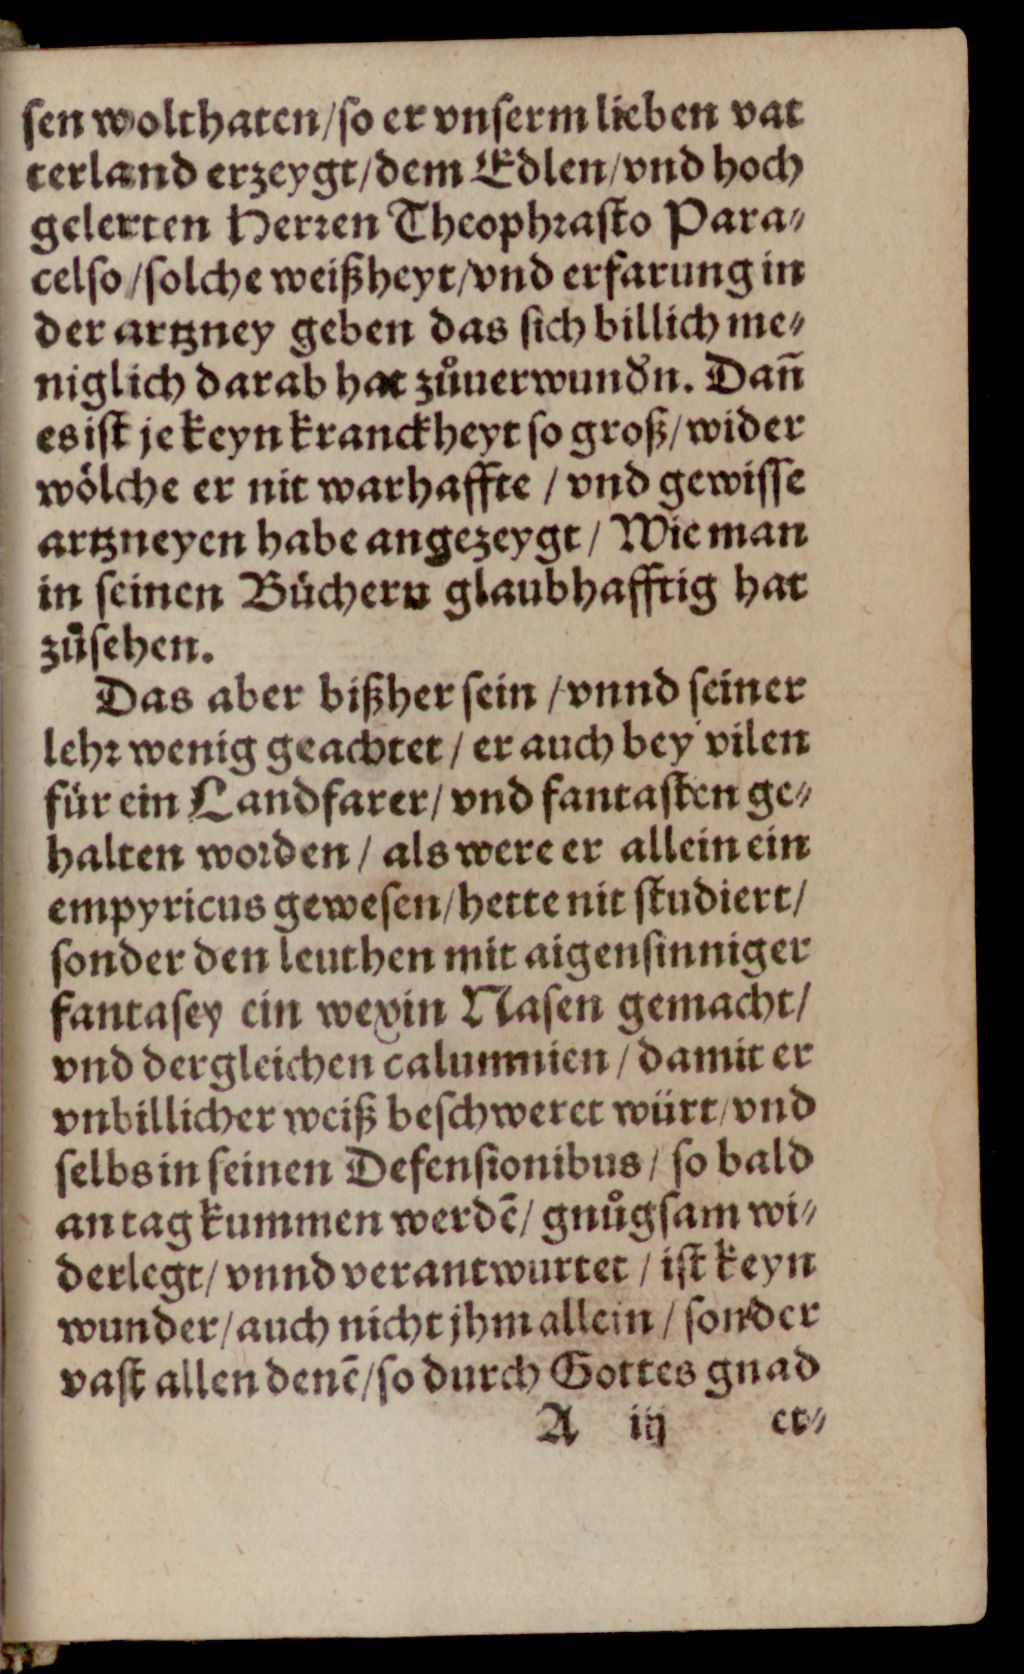 sen wolthaten/so er vnserm lieben vat
terland erzeygt/dem Edlen/vnd hoch
gelerten Herren Theophrasto Para⸗
celso/solche weißheyt/vnd erfarung in
der artzney geben das sich billich me⸗
niglich darab hat zůuerwundn̄. Dañ
es ist je keyn kranckheyt so groß/wider
woͤlche er nit warhaffte / vnd gewisse
artzneyen habe angezeygt / Wie man
in seinen Buͤchern glaubhafftig hat
zůsehen.
Das aber bißher sein / vnnd seiner
lehr wenig geachtet / er auch bey vilen
für ein Landfarer/ vnd fantasten ge⸗
halten worden / als were er allein ein
empyricus gewesen/hette nit studiert/
sonder den leuthen mit aigensinniger
fantasey ein wexin Nasen gemacht/
vnd dergleichen calumnien / damit er
vnbillicher weiß beschweret würt/vnd
selbs in seinen Defensionibus / so bald
an tag kummen werdē/ gnůgsam wi⸗
derlegt/ vnnd verantwurtet / ist keyn
wunder/auch nicht jhm allein / sonder
vast allen denē/so durch Gottes gnad
A iij er⸗